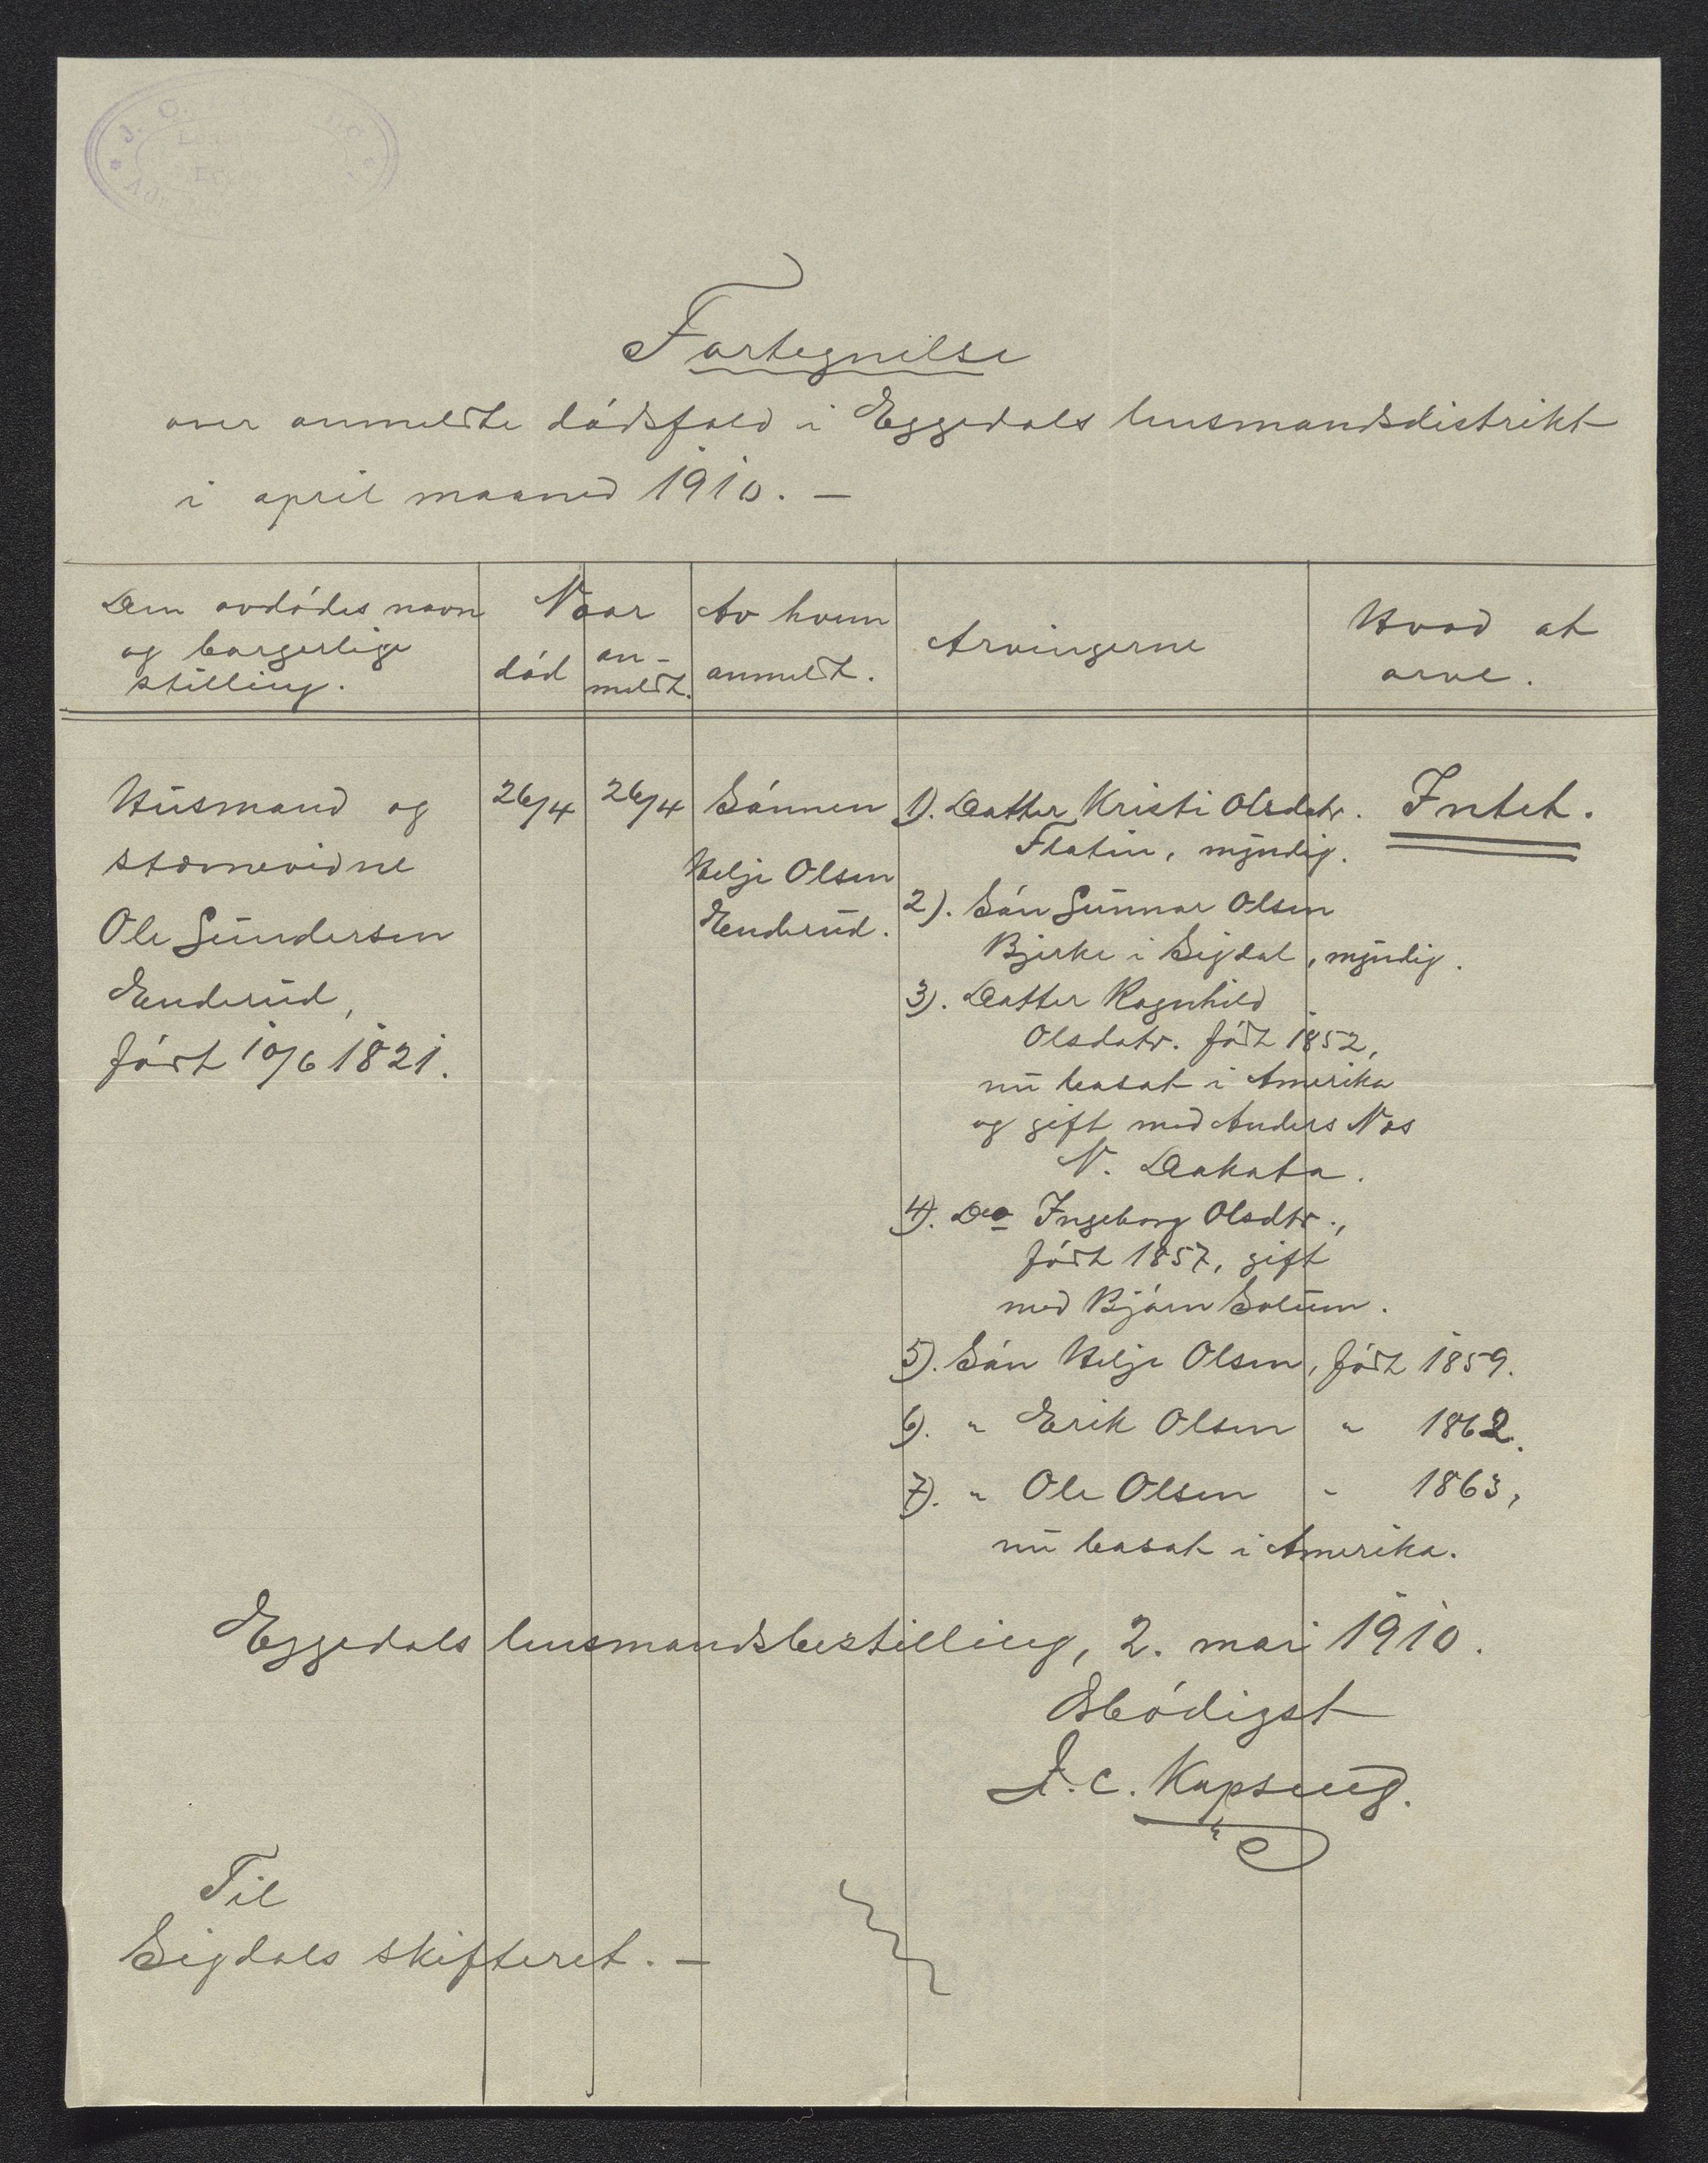 Fortegnelse
over anmeldte dódsfald i Eggedals lensmandsdistrikt
i april maaned 1910. —
Den avdódes navn
og borgerlige
stilling.
Naar
dód
an-
meldt.
Av hvem
anmeldt.
Arvingerne
Hvad at
arve.
Husmand og
stævnevidne
Ole Gundersen
Enderud,
fódt 10/6 1821.
26/4
26/4
Sónnen
Helje Olsen
Enderud.
1). Datter Kristi Olsdatr.
Flatin, myndig.
2). Són Gunnar Olsen
Bjerke i Sigdal, myndig.
3). Datter Ragnhild
Olsdatr. fódt 1852,
nu bosat i Amerika
og gift med Anders Næs
N. Dakota.
4). Do Ingeborg Olsdtr.,
fódt 1857, gift
med Bjórn Solum.
5). Són Helje Olsen, fódt 1859.
6). " Erik Olsen " 1862.
7). " Ole Olsen " 1863,
nu bosat i Amerika.
Intet.
Eggedals lensmandsbestilling, 2. mai 1910.
Ærbódigst
Kopseng.
Til
Sigdals skifteret. —